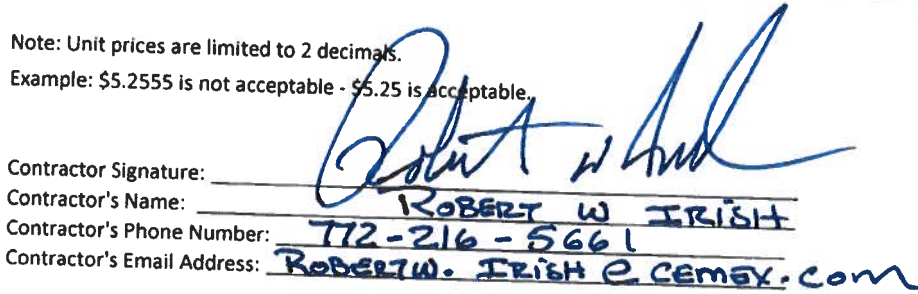 Note: Unit prices are limited to 2 decimals.
Example: $5.2555 is not acceptable - $5.25 is acceptable.
Contractor Signature: Robert W Irish
Contractor's Name: ROBERT W IRISH
Contractor's Phone Number: 772-216-5661
Contractor's Email Address: ROBERTW.IRISH@CEMEX.com